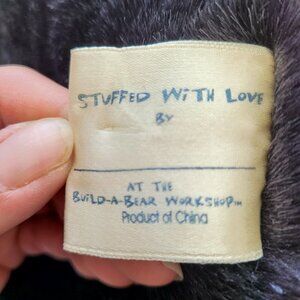 STUFFED WITH LOVE
BY
AT THE
BUILD-A-BEAR WORKSHOP™
Product of China